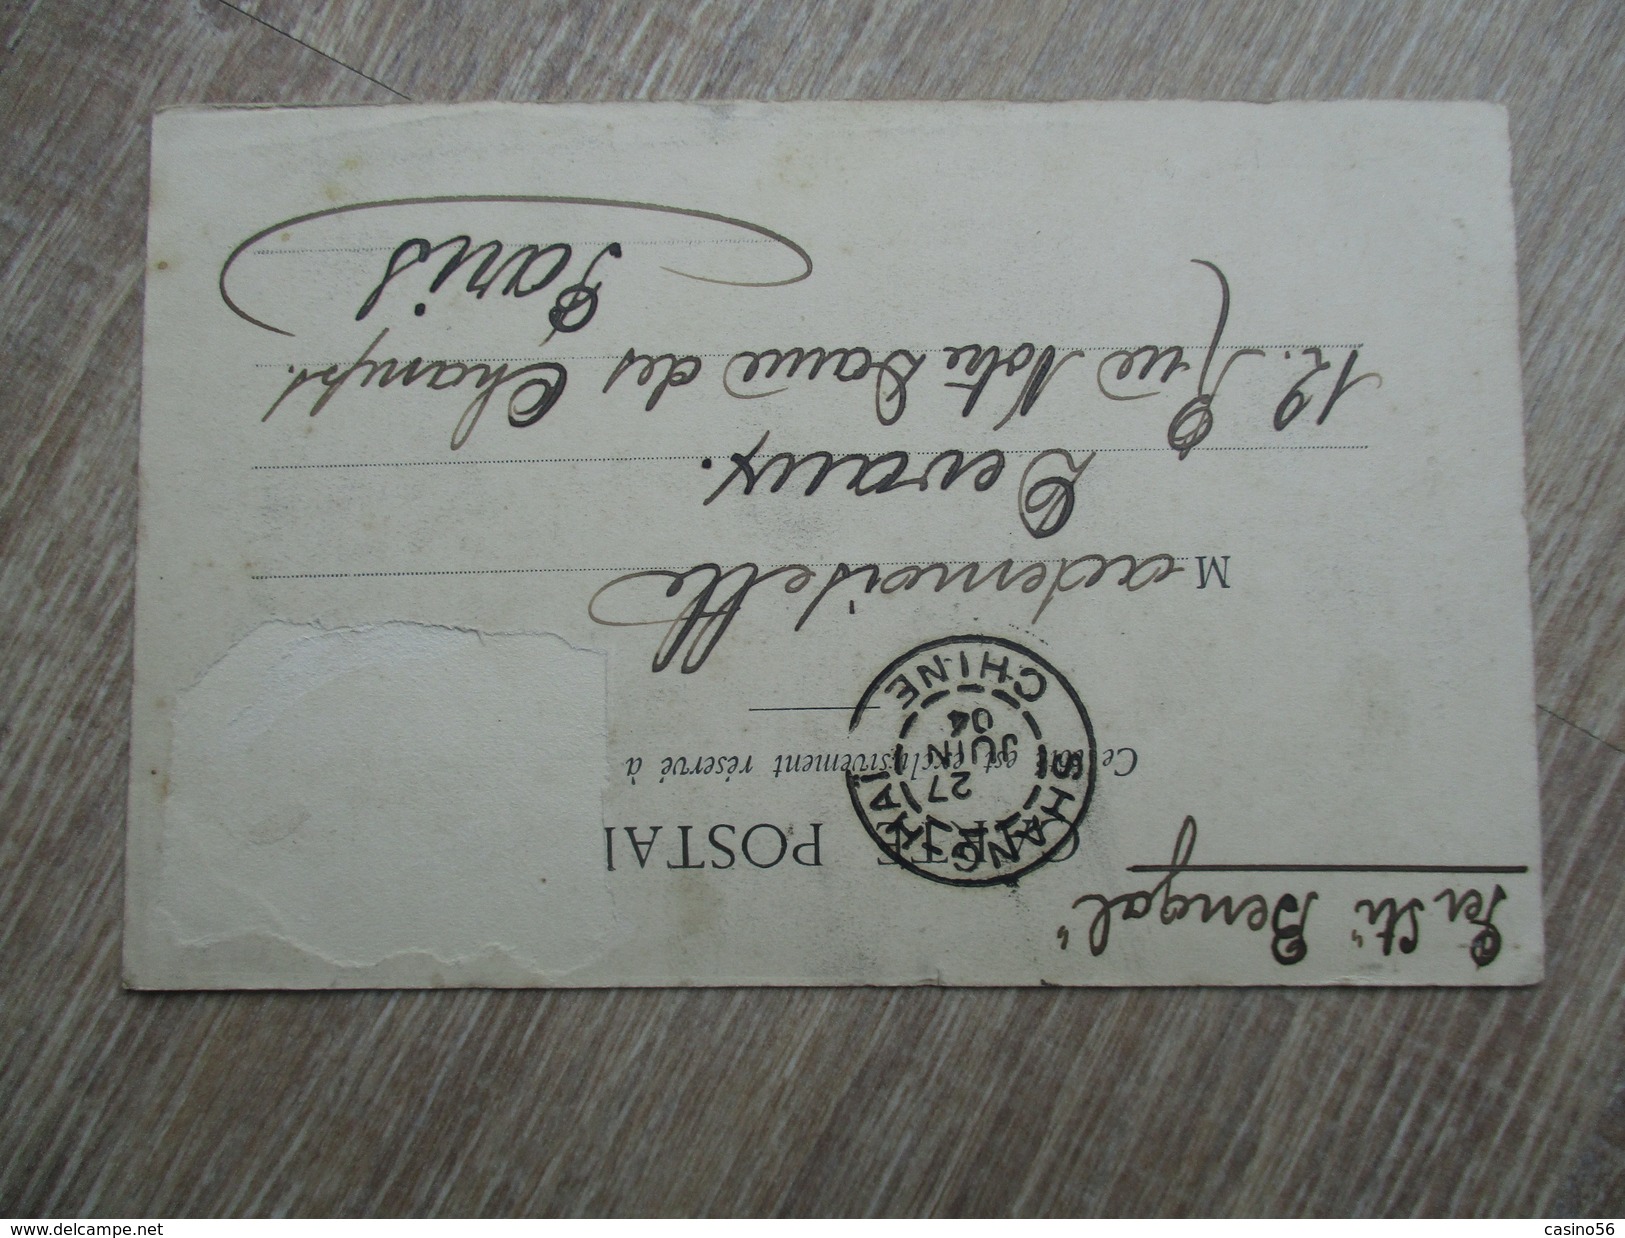 Per Str "Bengal"
CARTE POSTAL
Ce côté est exclusivement réservé à
SHANG-HAÏ
27
JUIN
04
CHINE
Mademoiselle
Devaux.
12. Rue Notre Dame des Champs.
Paris
www.delcampe.net
casino56